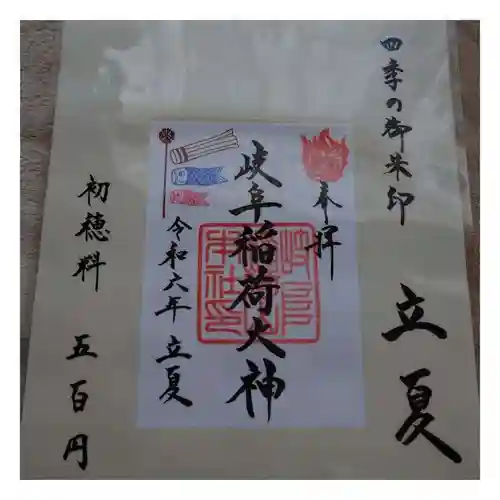 四季の御朱印 立夏
奉拝
岐阜稲荷大神
令和六年 立夏
初穂料 五百円